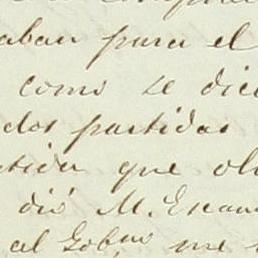 aban para el
como se die
dos partidas
tida que ob
dió M. Escan
al Gobno me